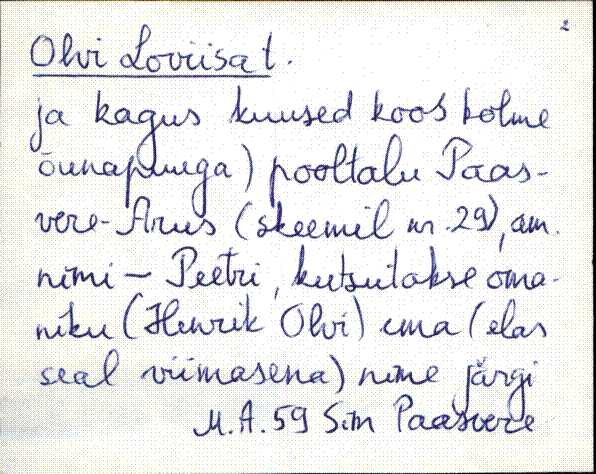 2
Olvi Loviisa t.
ja kagus kuused koos kolme
õunapuuga) pooltalu Paas-
vere-Arus (skeemil nr. 29), am.
nimi - Peetri, kutsutakse oma-
niku (Henrik Olvi) ema (elas
seal viimasena) nime järgi
M.A. 59 Sim Paasvere